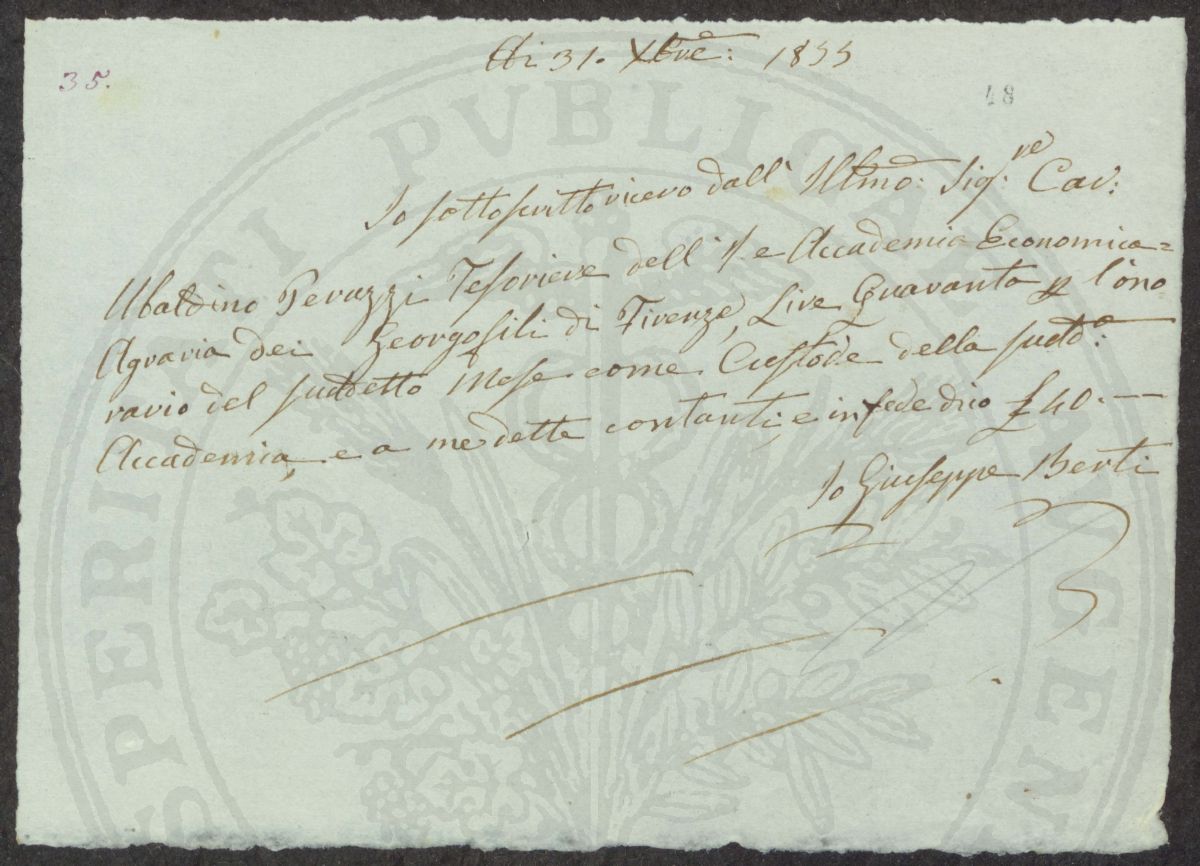 35.
Adi 31. Xbre: 1855
48
Io sottoscritto ricevo dall' Illmo: Sigre: Cav:
Ubaldino Peruzzi Tesoriere dell' I. e Accademia Economica=
Agraria dei Georgofili di Firenze, Lire Quaranta p l'ono
rario del suddetto Mese come Custode della sudda:
Accademia, e a me dette contanti, e in fede dico £ 40. —
Io Giuseppe Berti
SPERITATI PVBLICAE AVGEN